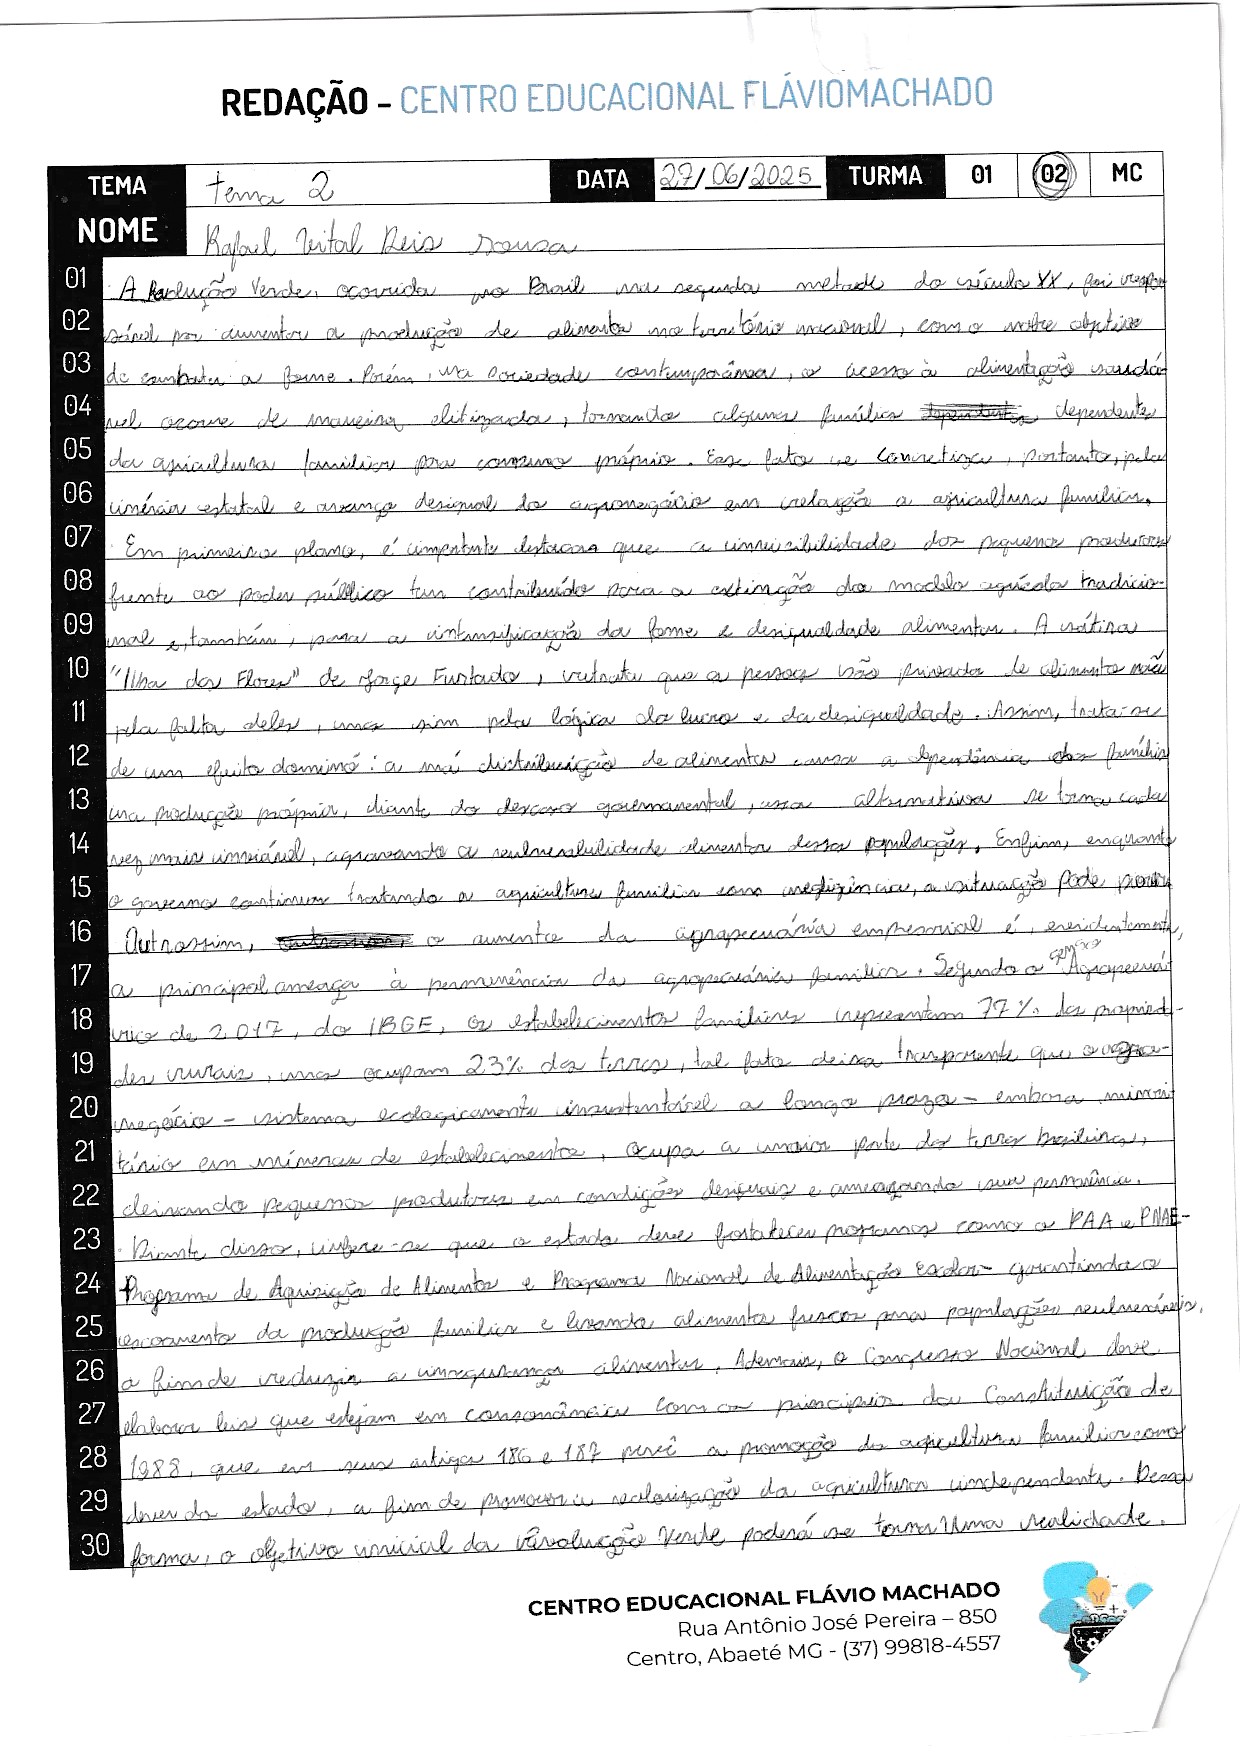 REDAÇÃO - CENTRO EDUCACIONAL FLÁVIOMACHADO
TEMA tema 2 DATA 27/06/2025 TURMA 01 02 MC
NOME Rafael Vital Reis Sousa
01 A Revolução Verde, ocorrida no Brasil na segunda metade do século XX, foi respon
02 sável por aumentar a produção de alimento no território nacional, com o nobre objetivo
03 de combater a fome. Porém, na sociedade contemporânea, o acesso à alimentação saudá
04 vel ocorre de maneira elitizada, tornando algumas famílias dependentes
05 da agricultura familiar para consumo próprio. Esse fato se concretiza, portanto, pela
06 inércia estatal e avanço desigual do agronegócio em relação a agricultura familiar.
07 Em primeiro plano, é importante destacar que a invisibilidade dos pequenos produtores
08 frente ao poder público tem contribuído para a extinção do modelo agrícola tradicio-
09 nal e, também, para a intensificação da fome e desigualdade alimentar. A sátira
10 "Ilha das Flores" de Jorge Furtado, retrata que a pessoas são privadas de alimento não
11 pela falta deles, mas sim pela lógica do lucro e da desigualdade. Assim, trata-se
12 de um efeito dominó: a má distribuição de alimentos causa a dependência das famílias
13 na produção própria, diante do descaso governamental, essa alternativa se torna cada
14 vez mais inviável, agravando a vulnerabilidade alimentar dessa população. Enfim, enquanto
15 o governo continuar tratando a agricultura familiar com negligência, a situação pode
16 Outrossim, o aumento da agropecuária empresarial é, evidentemente,
17 a principal ameaça à permanência da agropecuária familiar. Segundo o censo Agropecuá
18 rio de 2.017, do IBGE, os estabelecimentos familiares representam 77% das proprieda-
19 des rurais, mas ocupam 23% das terras, tal fato deixa transparente que o agro-
20 negócio - sistema ecologicamente insustentável a longo prazo - embora minori
21 tário em números de estabelecimentos, ocupa a maior parte das terras brasileiras,
22 deixando pequenos produtores em condições desiguais e ameaçando sua permanência.
23 Diante disso, infere-se que o estado deve fortalecer programas como o PAA e PNAE-
24 Programa de Aquisição de Alimentos e Programa Nacional de Alimentação Escolar- garantindo o
25 escoamento da produção familiar e levando alimentos frescos para populações vulneráveis,
26 a fim de reduzir a insegurança alimentar. Ademais, o Congresso Nacional deve
27 elaborar leis que estejam em consonância com os princípios da Constituição de
28 1988, que em seus artigos 186 e 187 prevê a promoção da agricultura familiar como
29 dever do estado, a fim de promover a valorização da agricultura independente. Dessa
30 forma, o objetivo inicial da Revolução Verde poderá se tornar uma realidade.
CENTRO EDUCACIONAL FLÁVIO MACHADO
Rua Antônio José Pereira – 850
Centro, Abaeté MG - (37) 99818-4557